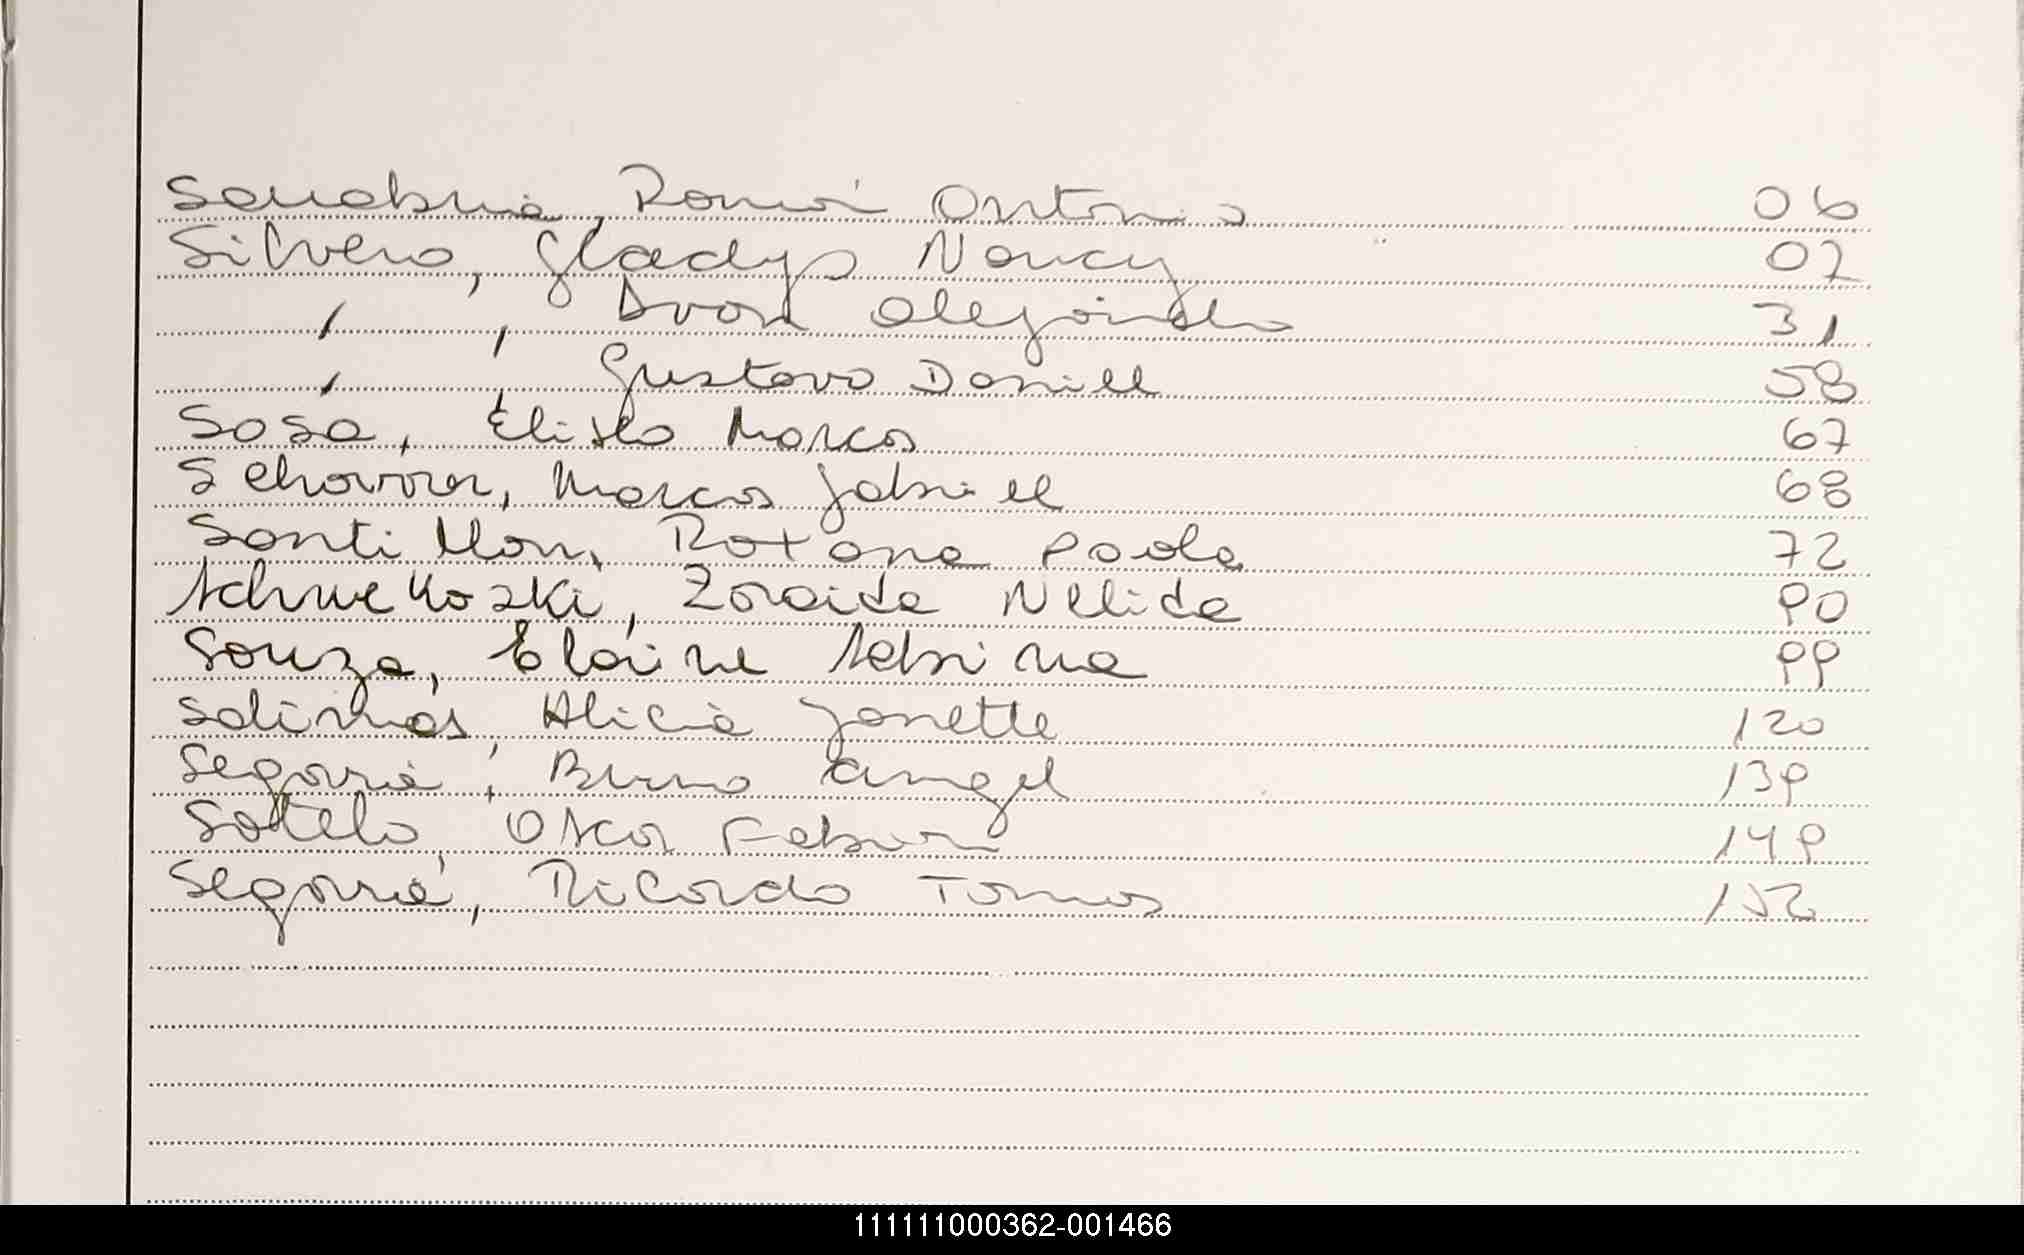 Sanabria, Román Antonio 06
Silvero, Gladys Nancy 07
" , Iván Alejandro 31
" , Gustavo Daniel 58
Sosa, Marcos 67
Marcos Gabriel 68
Santillan, Roxana Paola 72
Zoraida Nelida 90
Souza, Elaine Sabrina 99
Salinas, Alicia Janette 120
Segovia, Bruno Angel 139
Sotelo, Oscar Fabian 149
Segovia, Ricardo Tomas 152
111111000362-001466